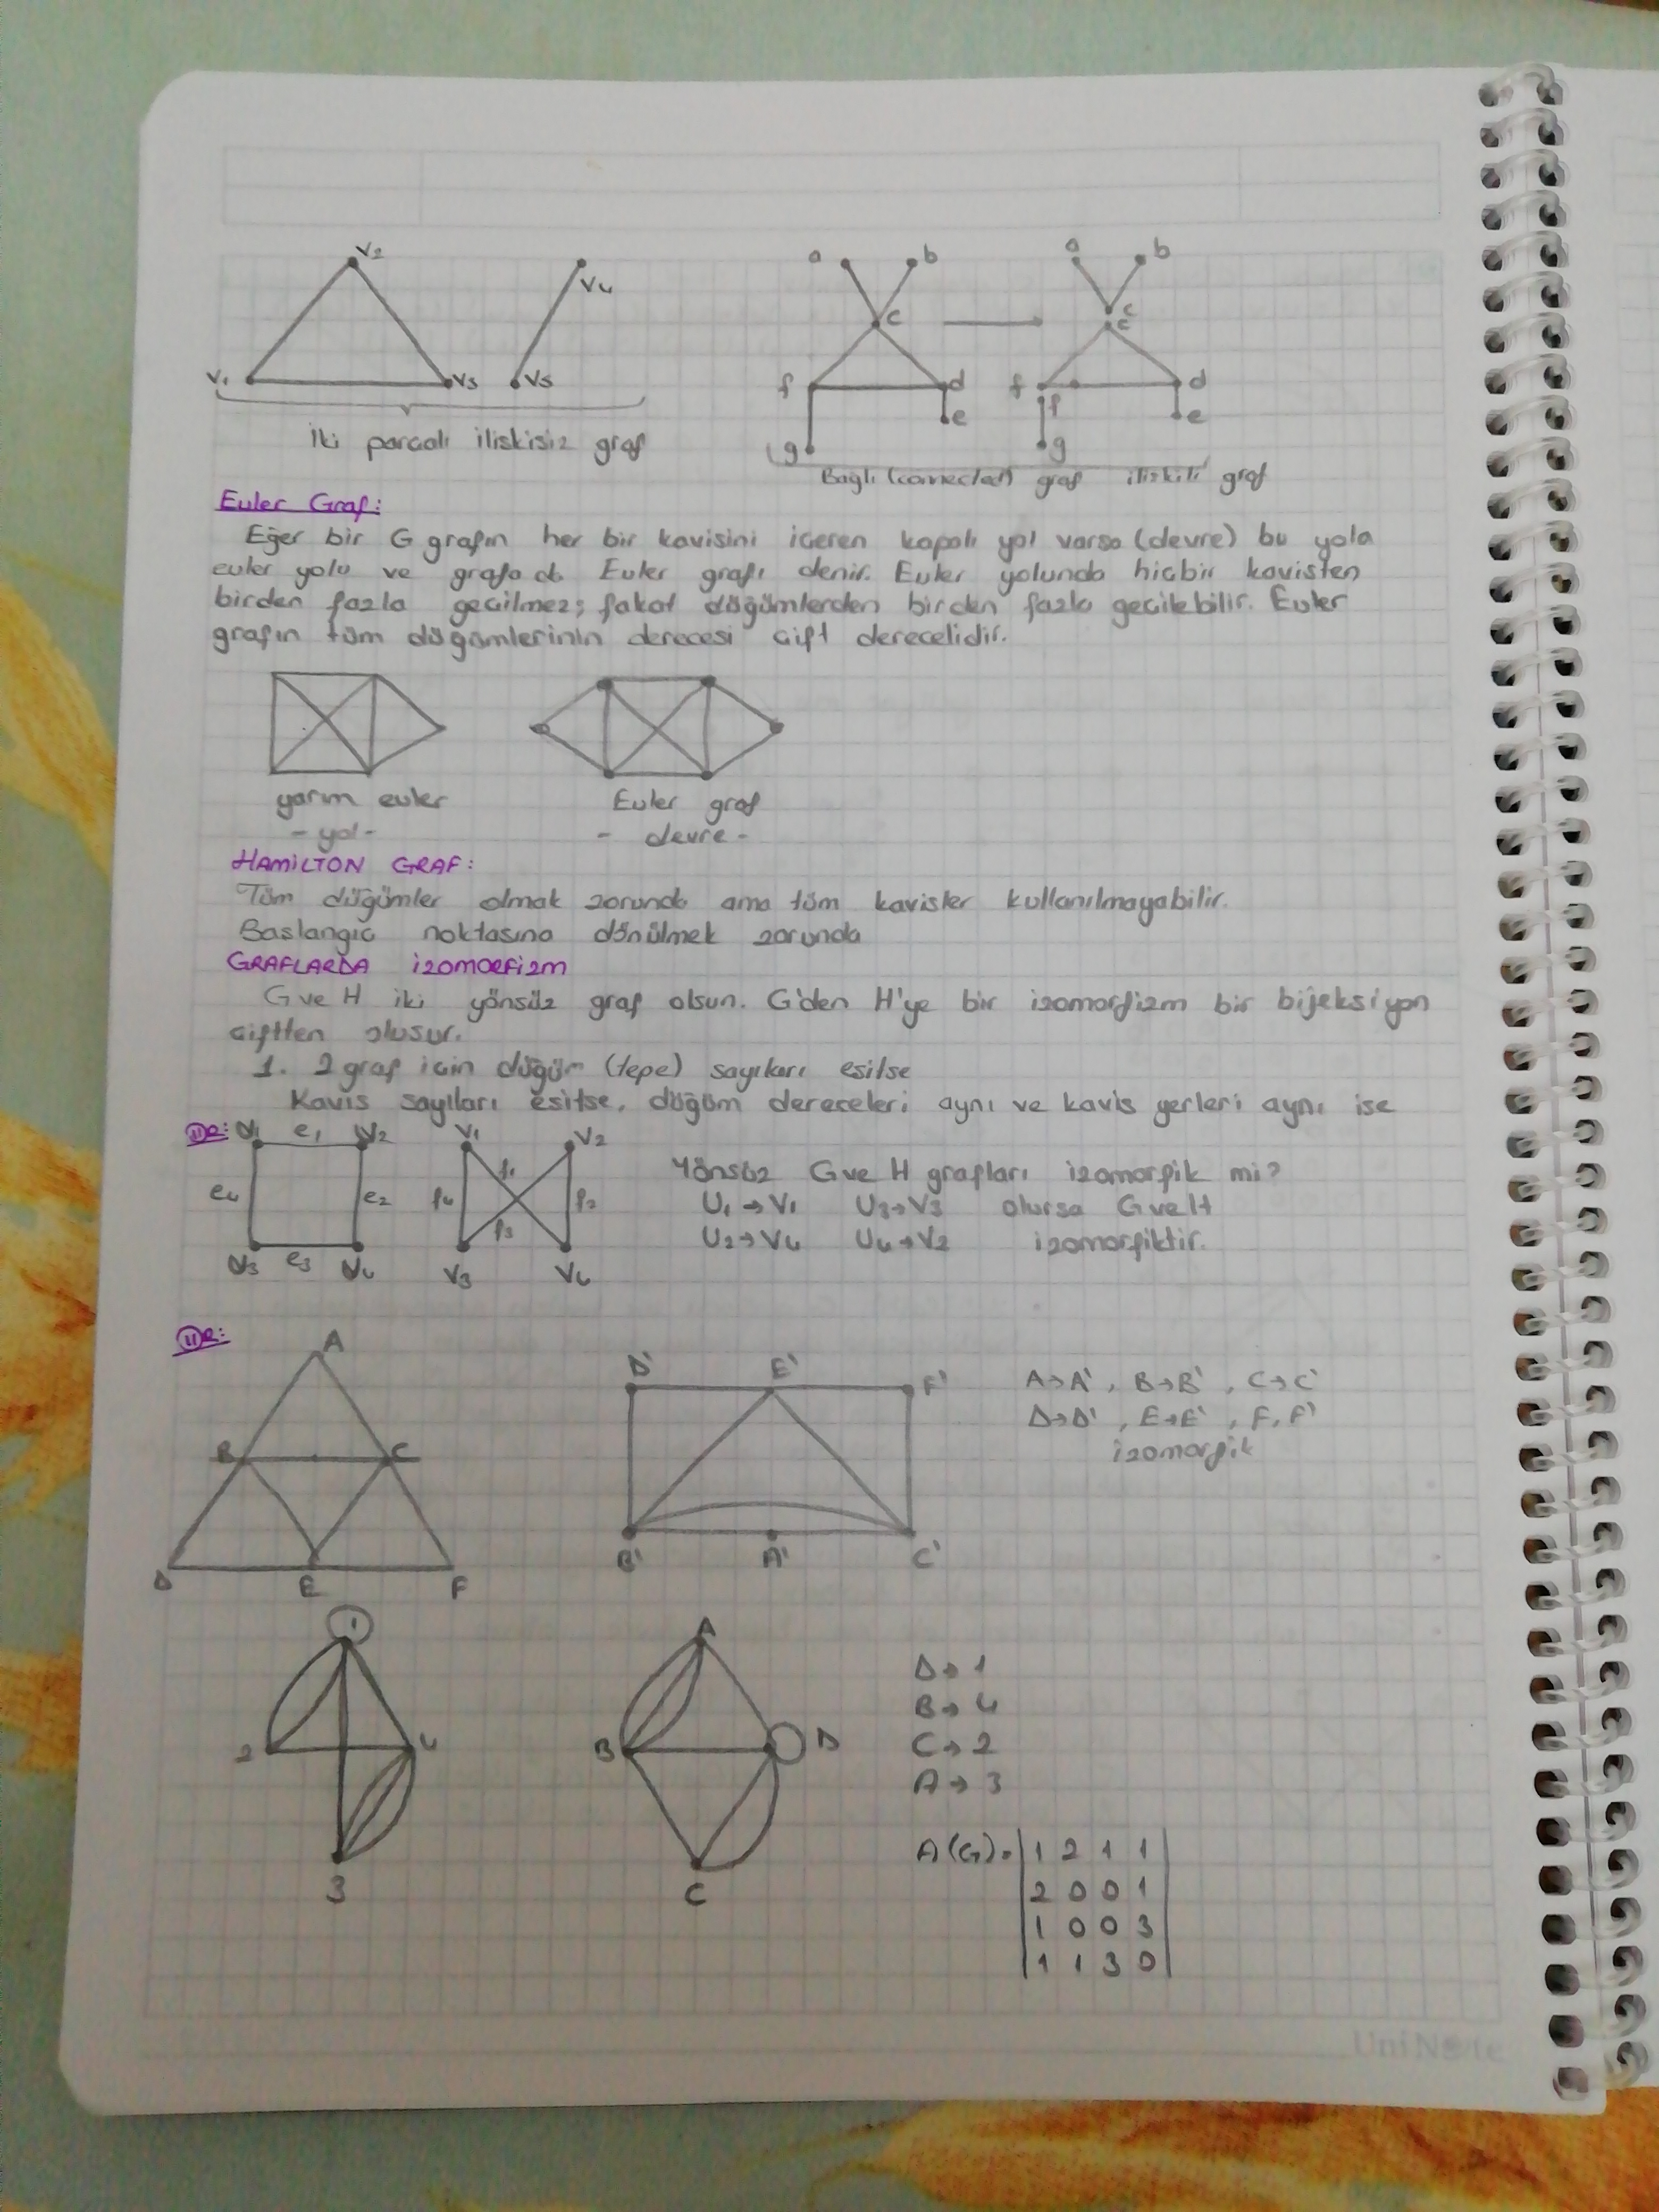 V2
V4
V1
V3
V5
İki parçalı ilişkisiz graf
a b
c
f d
e
g
a b
c
c
f d
f e
g
Bağlı (connected) graf ilişkili graf
Euler Graf:
Eğer bir G grafın her bir kavisini içeren kapalı yol varsa (devre) bu yola
euler yolu ve grafa da Euler grafı denir. Euler yolunda hiçbir kavisten
birden fazla geçilmez; fakat düğümlerden birden fazla geçilebilir. Euler
grafın tüm düğümlerinin derecesi çift derecelidir.
yarım euler
- yol -
Euler graf
- devre -
HAMİLTON GRAF:
Tüm düğümler olmak zorunda ama tüm kavisler kullanılmayabilir.
Başlangıç noktasına dönülmek zorunda
GRAFLARDA İZOMORFİZM
G ve H iki yönsüz graf olsun. G'den H'ye bir izomorfizm bir bijeksiyon
çiftten oluşur.
1. 2 graf için düğüm (tepe) sayıları eşitse
Kavis sayıları eşitse, düğüm dereceleri aynı ve kavis yerleri aynı ise
e1
e4 e2
e3
V1 V2
f1
f4 f2
f3
V3 V4
Yönsüz G ve H grafları izomorfik mi?
U1→V1 U3→V3 olursa G ve H
U2→V4 U4→V2 izomorfiktir.
A
B C
D E F
D' E' F'
B' A' C'
A→A', B→B', C→C'
D→D', E→E', F, F'
izomorfik
1
2 4
3
A
B D
C
D→1
B→4
C→2
A→3
A(G)=
1 2 1 1
2 0 0 1
1 0 0 3
1 1 3 0
UniNote